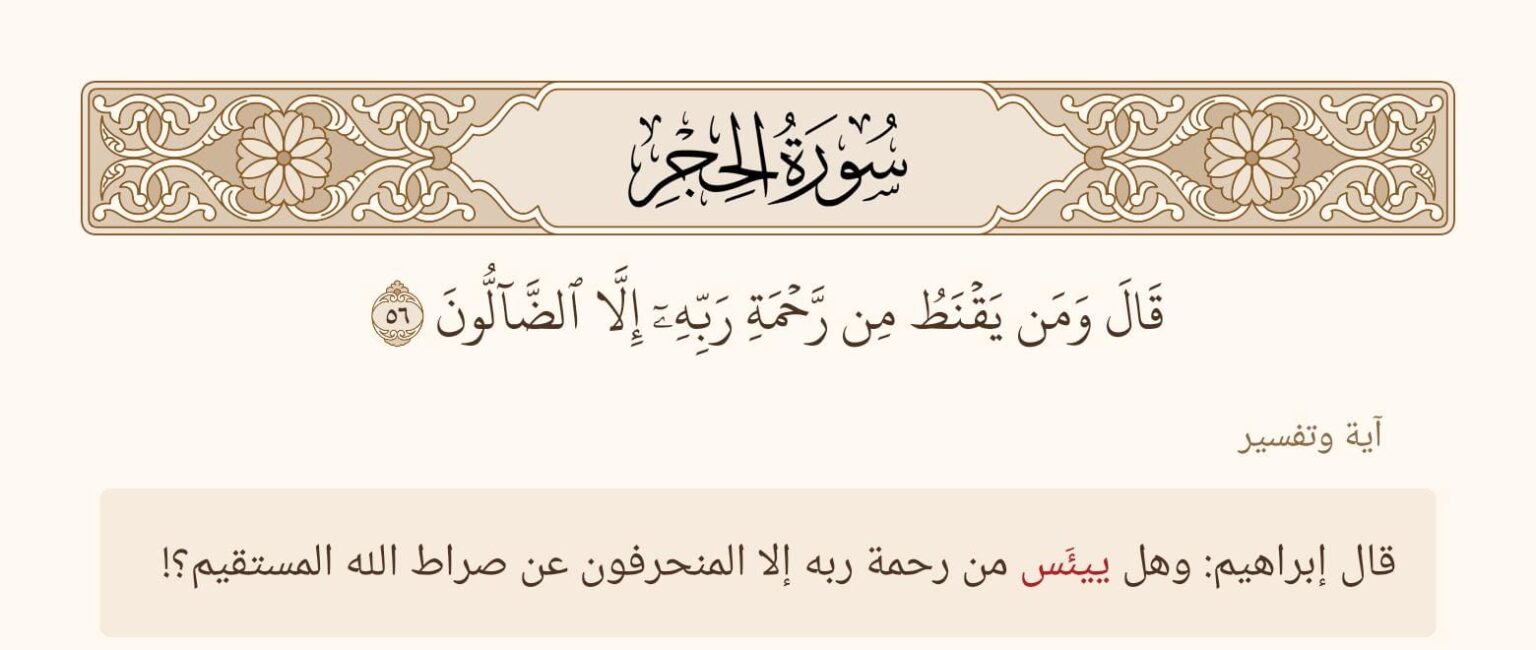 سُورَةُ الحِجْرِ
قَالَ وَمَن يَقْنَطُ مِن رَّحْمَةِ رَبِّهِۦٓ إِلَّا ٱلضَّآلُّونَ ٥٦
آية وتفسير
قال إبراهيم: وهل ييئَس من رحمة ربه إلا المنحرفون عن صراط الله المستقيم؟!